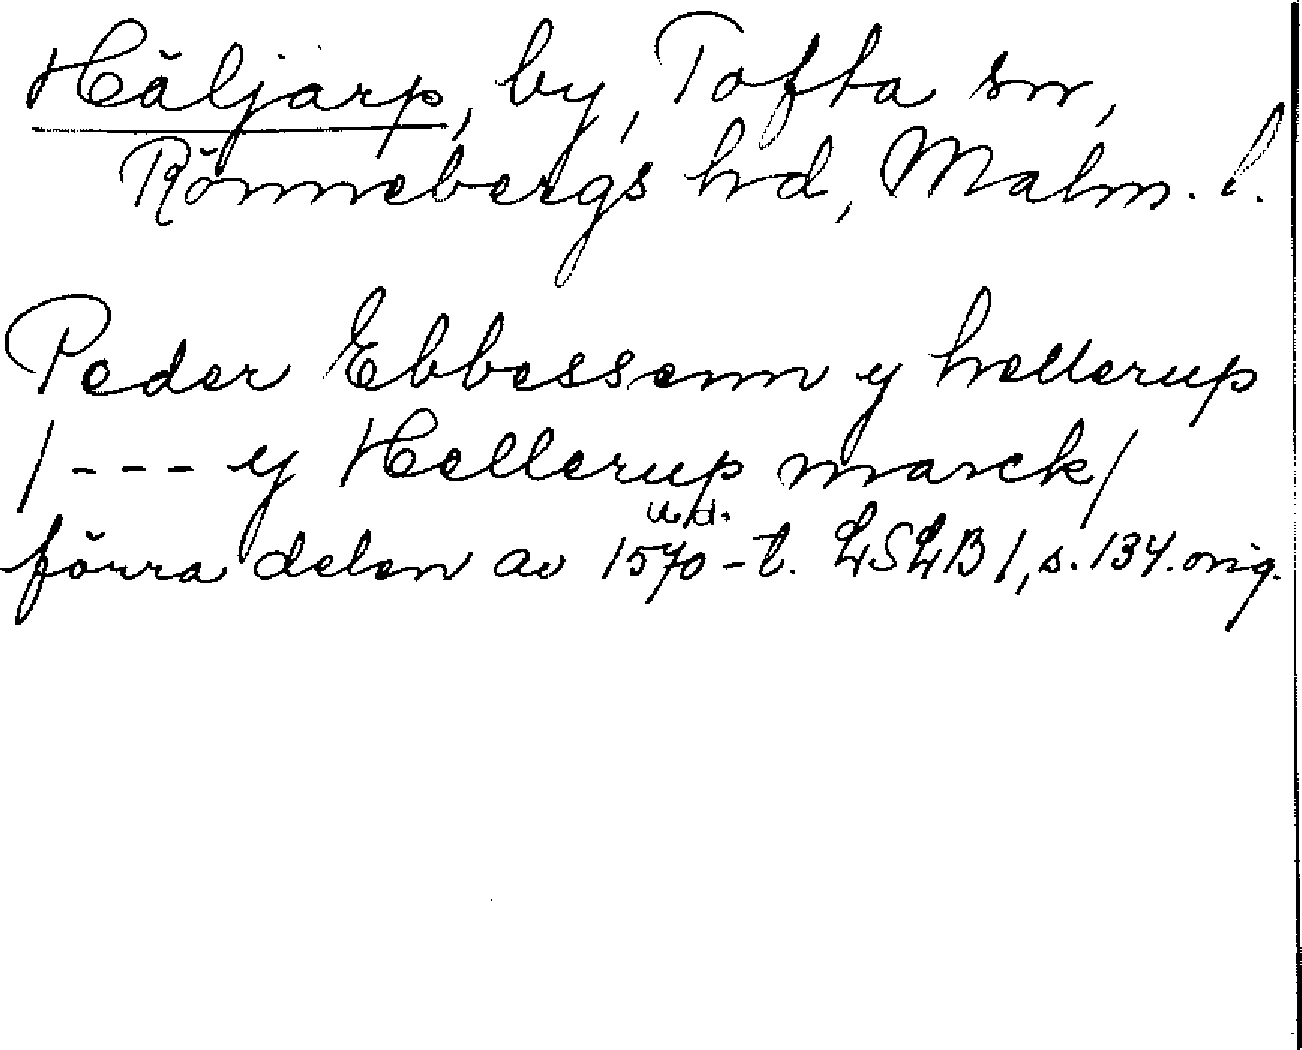 Häljarp, by, Tofta sn,
Rönnebergs hd, Malm. l.
Peder Ebbessenn y hellerup
/--- y Hellerup marck/
u.d.
förra delen av 1570-t. LSLB 1, s. 134. orig.